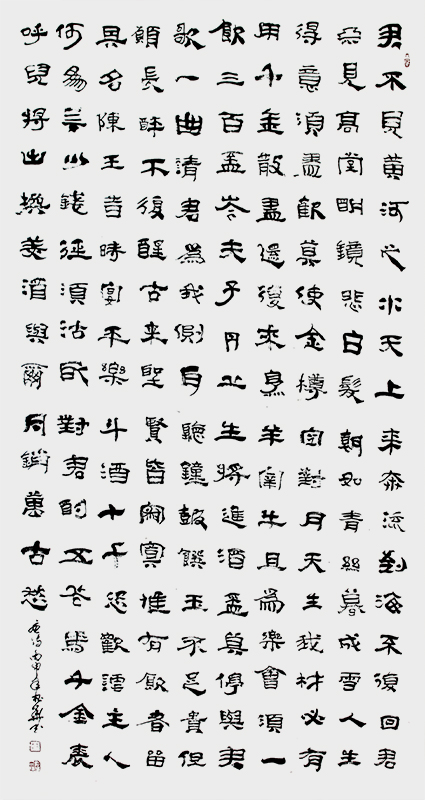 君不見黃河之水天上來奔流到海不復回君
不見高堂明鏡悲白髮朝如青絲暮成雪人生
得意須盡歡莫使金樽空對月天生我材必有
用千金散盡還復來烹羊宰牛且為樂會須一
飲三百盃岑夫子丹丘生將進酒盃莫停與君
歌一曲請君為我側耳聽鐘鼓饌玉不足貴但
願長醉不復醒古來聖賢皆寂寞惟有飲者留
其名陳王昔時宴平樂斗酒十千恣歡謔主人
何為言少錢徑須沽取對君酌五花馬千金裘
呼兒將出換美酒與爾同銷萬古愁
唐詩丙申年